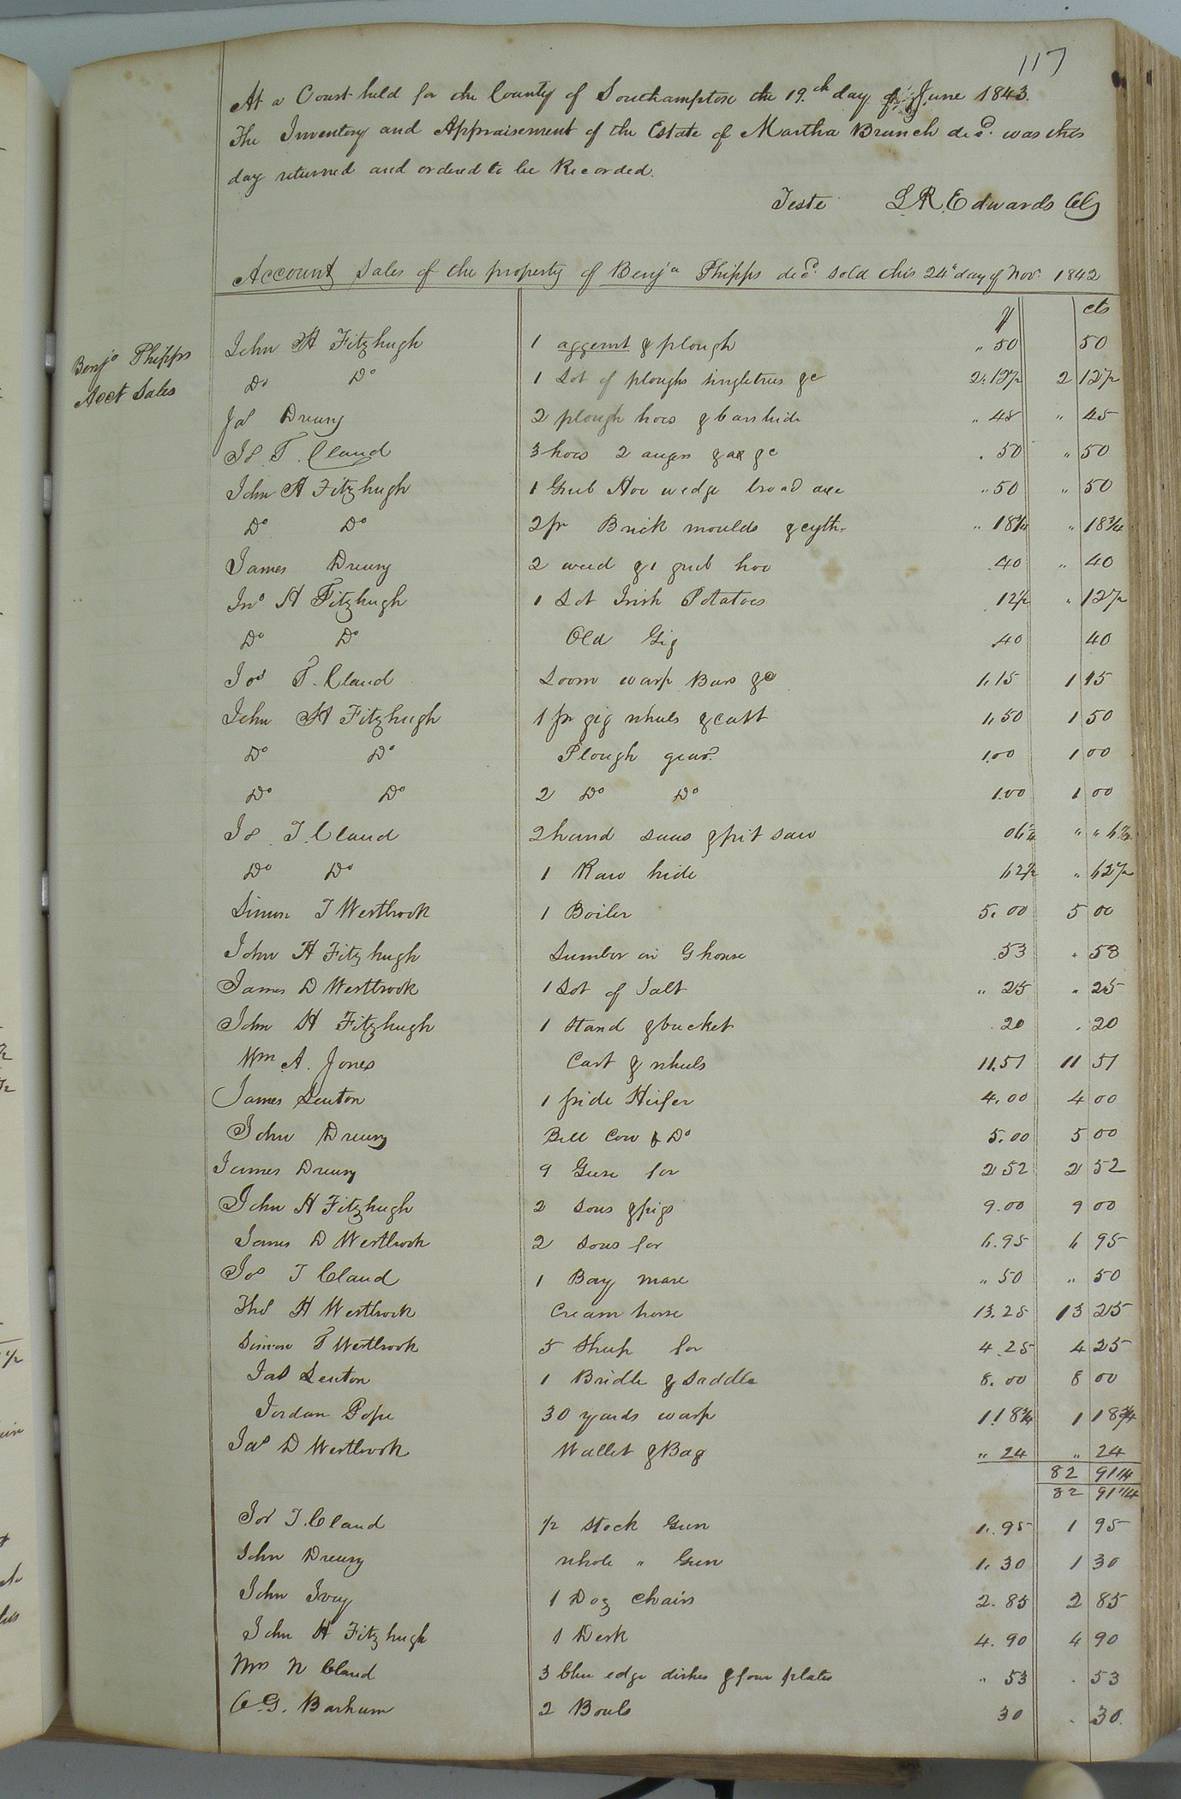 117
At a Court held for the County of Southampton the 19.th day of June 1843.
The Inventory and Appraisement of the Estate of Martha Branch decd. was this
day returned and ordered to be Recorded.
Teste L. R. Edwards CC
Account Sales of the property of Benja Phipps decd. sold this 24th day of Nov. 1842
$ cts
Benja Phipps
Acct Sales
John H Fitzhugh 1 & plough " 50 50
Do Do 1 Lot of ploughs singletrees &c 2.12½ 2 12½
Jas Drewry 2 plough hoes & " 45 " 45
Js. T. Claud 3 hoes 2 augers & ax &c . 50 " 50
John H Fitzhugh 1 Grub Hoe wedge broad axe " 50 " 50
Do Do 2 pr Brick moulds & cyth " 18¾ " 18¾
James Drewry 2 weed & 1 grub hoe .40 " 40
Jno H Fitzhugh 1 Lot Irish Potatoes .12½ " 12½
Do Do Old Gig .40 40
Jos T. Claud Loom warp Bars &c 1.15 1 15
John H Fitzhugh 1 pr gig wheels & cart 1.50 1 50
Do Do Plough gear 1.00 1 00
Do Do 2 Do Do 1.00 1 00
Js. T. Claud 2 hand saws & pit saw 06¼ " " 6¼
Do Do 1 Raw hide 62½ " 62½
Simon T Westbrook 1 Boiler 5.00 5 00
John H Fitzhugh Lumber in G house .53 " 53
James D Westbrook 1 Lot of Salt " 25 " 25
John H Fitzhugh 1 Stand & bucket .20 . 20
Wm A. Jones Cart & wheels 11.51 11 51
James Senton 1 pide Heifer 4.00 4 00
John Drewry Bell Cow & Do 5.00 5 00
James Drewry 9 Geese for 2 52 2 52
John H Fitzhugh 2 Sows & pigs 9.00 9 00
James D Westbrook 2 Sows for 6.95 6 95
Jos T Claud 1 Bay mare " 50 " 50
Thos H Westbrook Cream horse 13.25 13 25
Simon T Westbrook 5 Sheep for 4.25 4 25
Jas Senton 1 Bridle & Saddle 8.00 8 00
Jordan Pope 30 yards warp 1.18¾ 1 18¾
Jas D Westbrook Wallet & Bag " 24 " 24
82 91¼
82 91¼
Jos T. Claud ½ Stock Gun 1.95 1 95
John Drewry whole " Gun 1.30 1 30
John Ivey 1 Doz Chairs 2.85 2 85
John H Fitzhugh 1 Desk 4.90 4 90
Mrs N Claud 3 blue edge dishes & four plates " 53 . 53
C. G. Barham 2 Bowls 30 . 30.